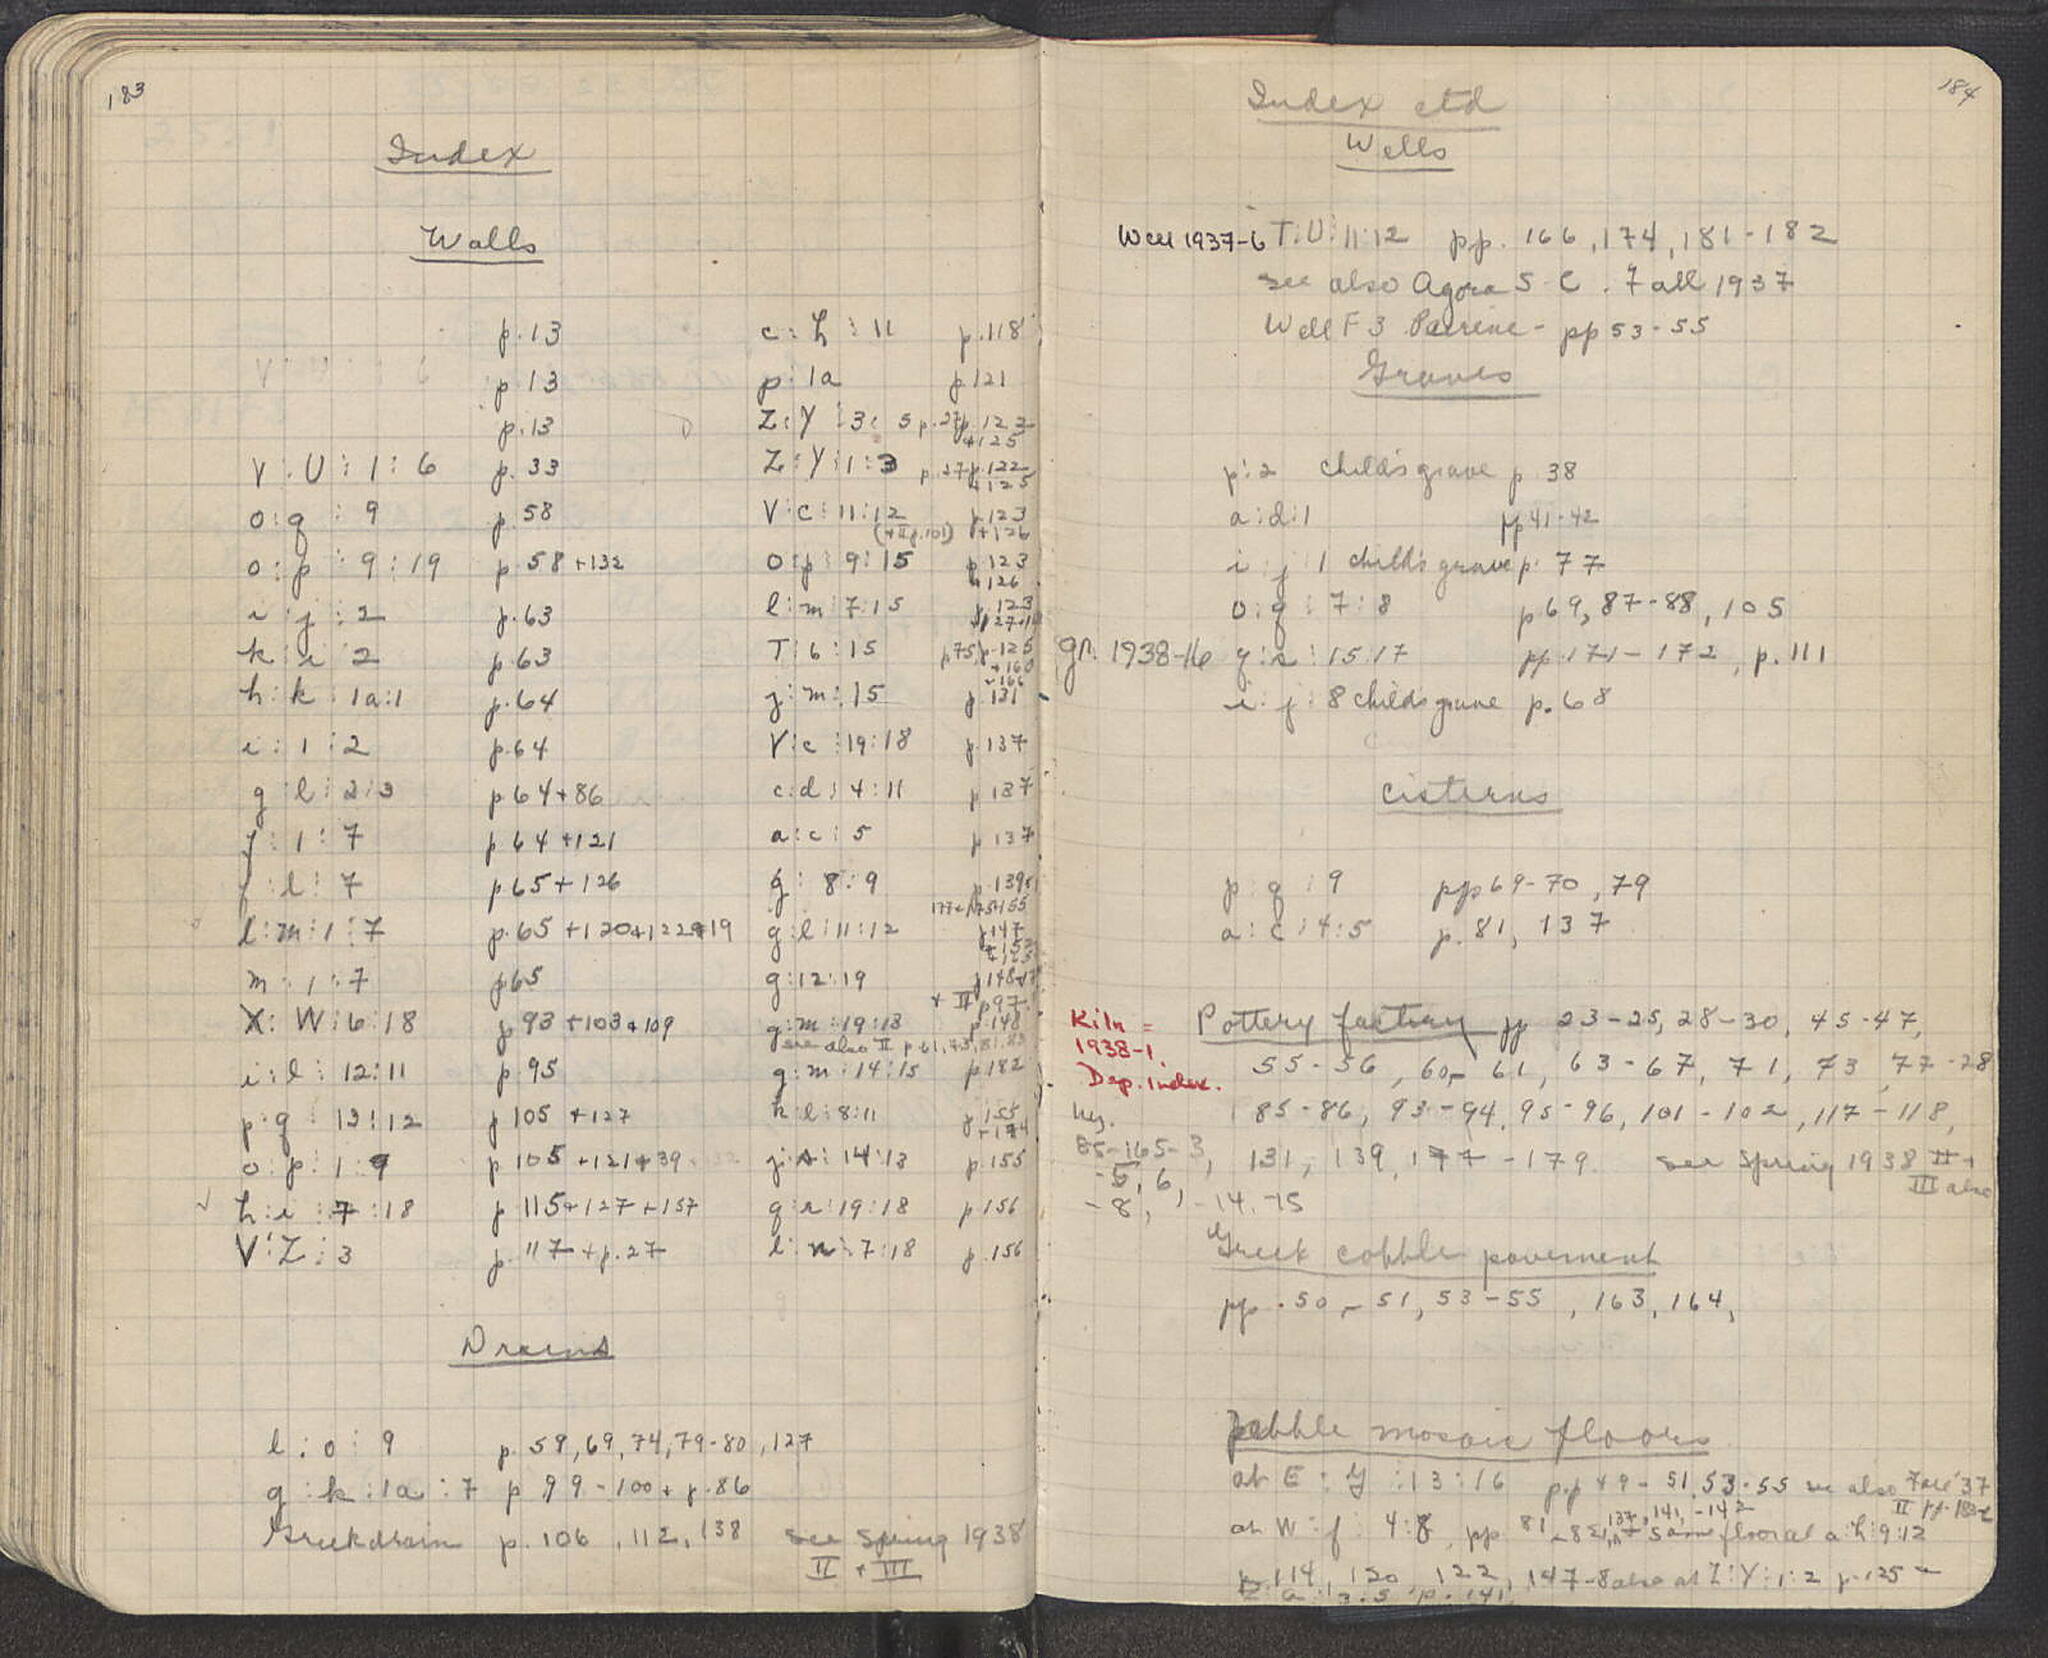 183
Index
Walls
p. 13
p. 13
p. 13
V : U : 1 : 6 p. 33
o : q : 9 p. 58
o : p : 9 : 19 p. 58 + 132
i : j : 2 p. 63
k : i 2 p. 63
h : k : 1a : 1 p. 64
i : 1 : 2 p. 64
g : l : 2 : 3 p. 64 + 86
j : 1 : 7 p. 64 + 121
: l : 7 p. 65 + 126
l : m : 1 : 7 p. 65 + 120 + 122 + 19
m : 1 : 7 p. 65
X : W : 6 : 18 p. 93 + 103 + 109
i : l : 12 : 11 p. 95
p : q : 13 : 12 p. 105 + 127
o : p : 1 : 9 p. 105 + 121 + 39
h : i : 7 : 18 p. 115 + 127 + 157
V : Z : 3 p. 117 + p. 27
c : h : 11 p. 118
p : 1a p. 121
Z : Y : 3 : 5 p. 27 p. 122
+ 125
Z : Y : 1 : 3 p. 27 p. 122
+ 125
V : c : 11 : 12 p. 123
(+ II p. 101) + 126
o : p : 9 : 15 p. 123
126
l : m : 7 : 15 p. 123
T : 6 : 15 p. 75, p. 125
+ 160
166
j : m : 15 p. 131
V : c : 19 : 18 p. 137
c : d : 4 : 11 p. 137
a : c : 5 p. 137
g : 8 : 9 p. 139
g : l : 11 : 12 p. 147
g : 12 : 19 p. 148
+ II p 97
g : m : 19 : 13 p. 148
see also II p.
g : m : 14 : 15 p. 182
k : l : 8 : 11 p. 155
+ 174
j : s : 14 : 13 p. 155
q : r : 19 : 18 p. 156
l : n : 7 : 18 p. 156
Drains
l : o : 9 p. 59, 69, 74, 79-80, 127
g : k : 1a : 7 p 99 - 100 + p. 86
Greek drain p. 106, 112, 138 see Spring 1938
II + III
184
Index ctd
Wells
Well 1937-6 T : U : 11 : 12 pp. 166, 174, 181 - 182
see also Agora S - C. Fall 1937
Well F 3 Peirene - pp 53 - 55
Graves
p : 2 child's grave p 38
a : d : 1 pp 41 - 42
i : j 1 child's grave p. 77
o : q : 7 : 8 p 69, 87-88, 105
gr. 1938-16 q : s : 15 17 pp. 171 - 172, p. 111
i : j : 8 childs grave p. 68
cisterns
p : q : 9 pp 69 - 70, 79
a : c : 4 : 5 p. 81, 137
Kiln =
1938-1.
Dep. index.
Pottery factory pp 23-25, 28-30, 45-47,
55-56, 60-61, 63-67, 71, 73, 77-28
85-86, 93-94, 95-96, 101-102, 117-118,
131, 139, 177-179 see Spring 1938 II +
III also
85-165-3,
-5, 6,
-8, -14, -15
Greek cobble pavement
pp. 50 - 51, 53 - 55, 163, 164,
Pebble mosaic floors
at E : Y : 13 : 16 pp 49 - 51, 53-55 see also Fall '37
at W : f : 4 : 8, pp 81 137, 141, -142 same floor at a : h : 9 : 12
p. 114, 120 122, 147-8 also at Z : Y : 1 : 2 p. 125
p. 141